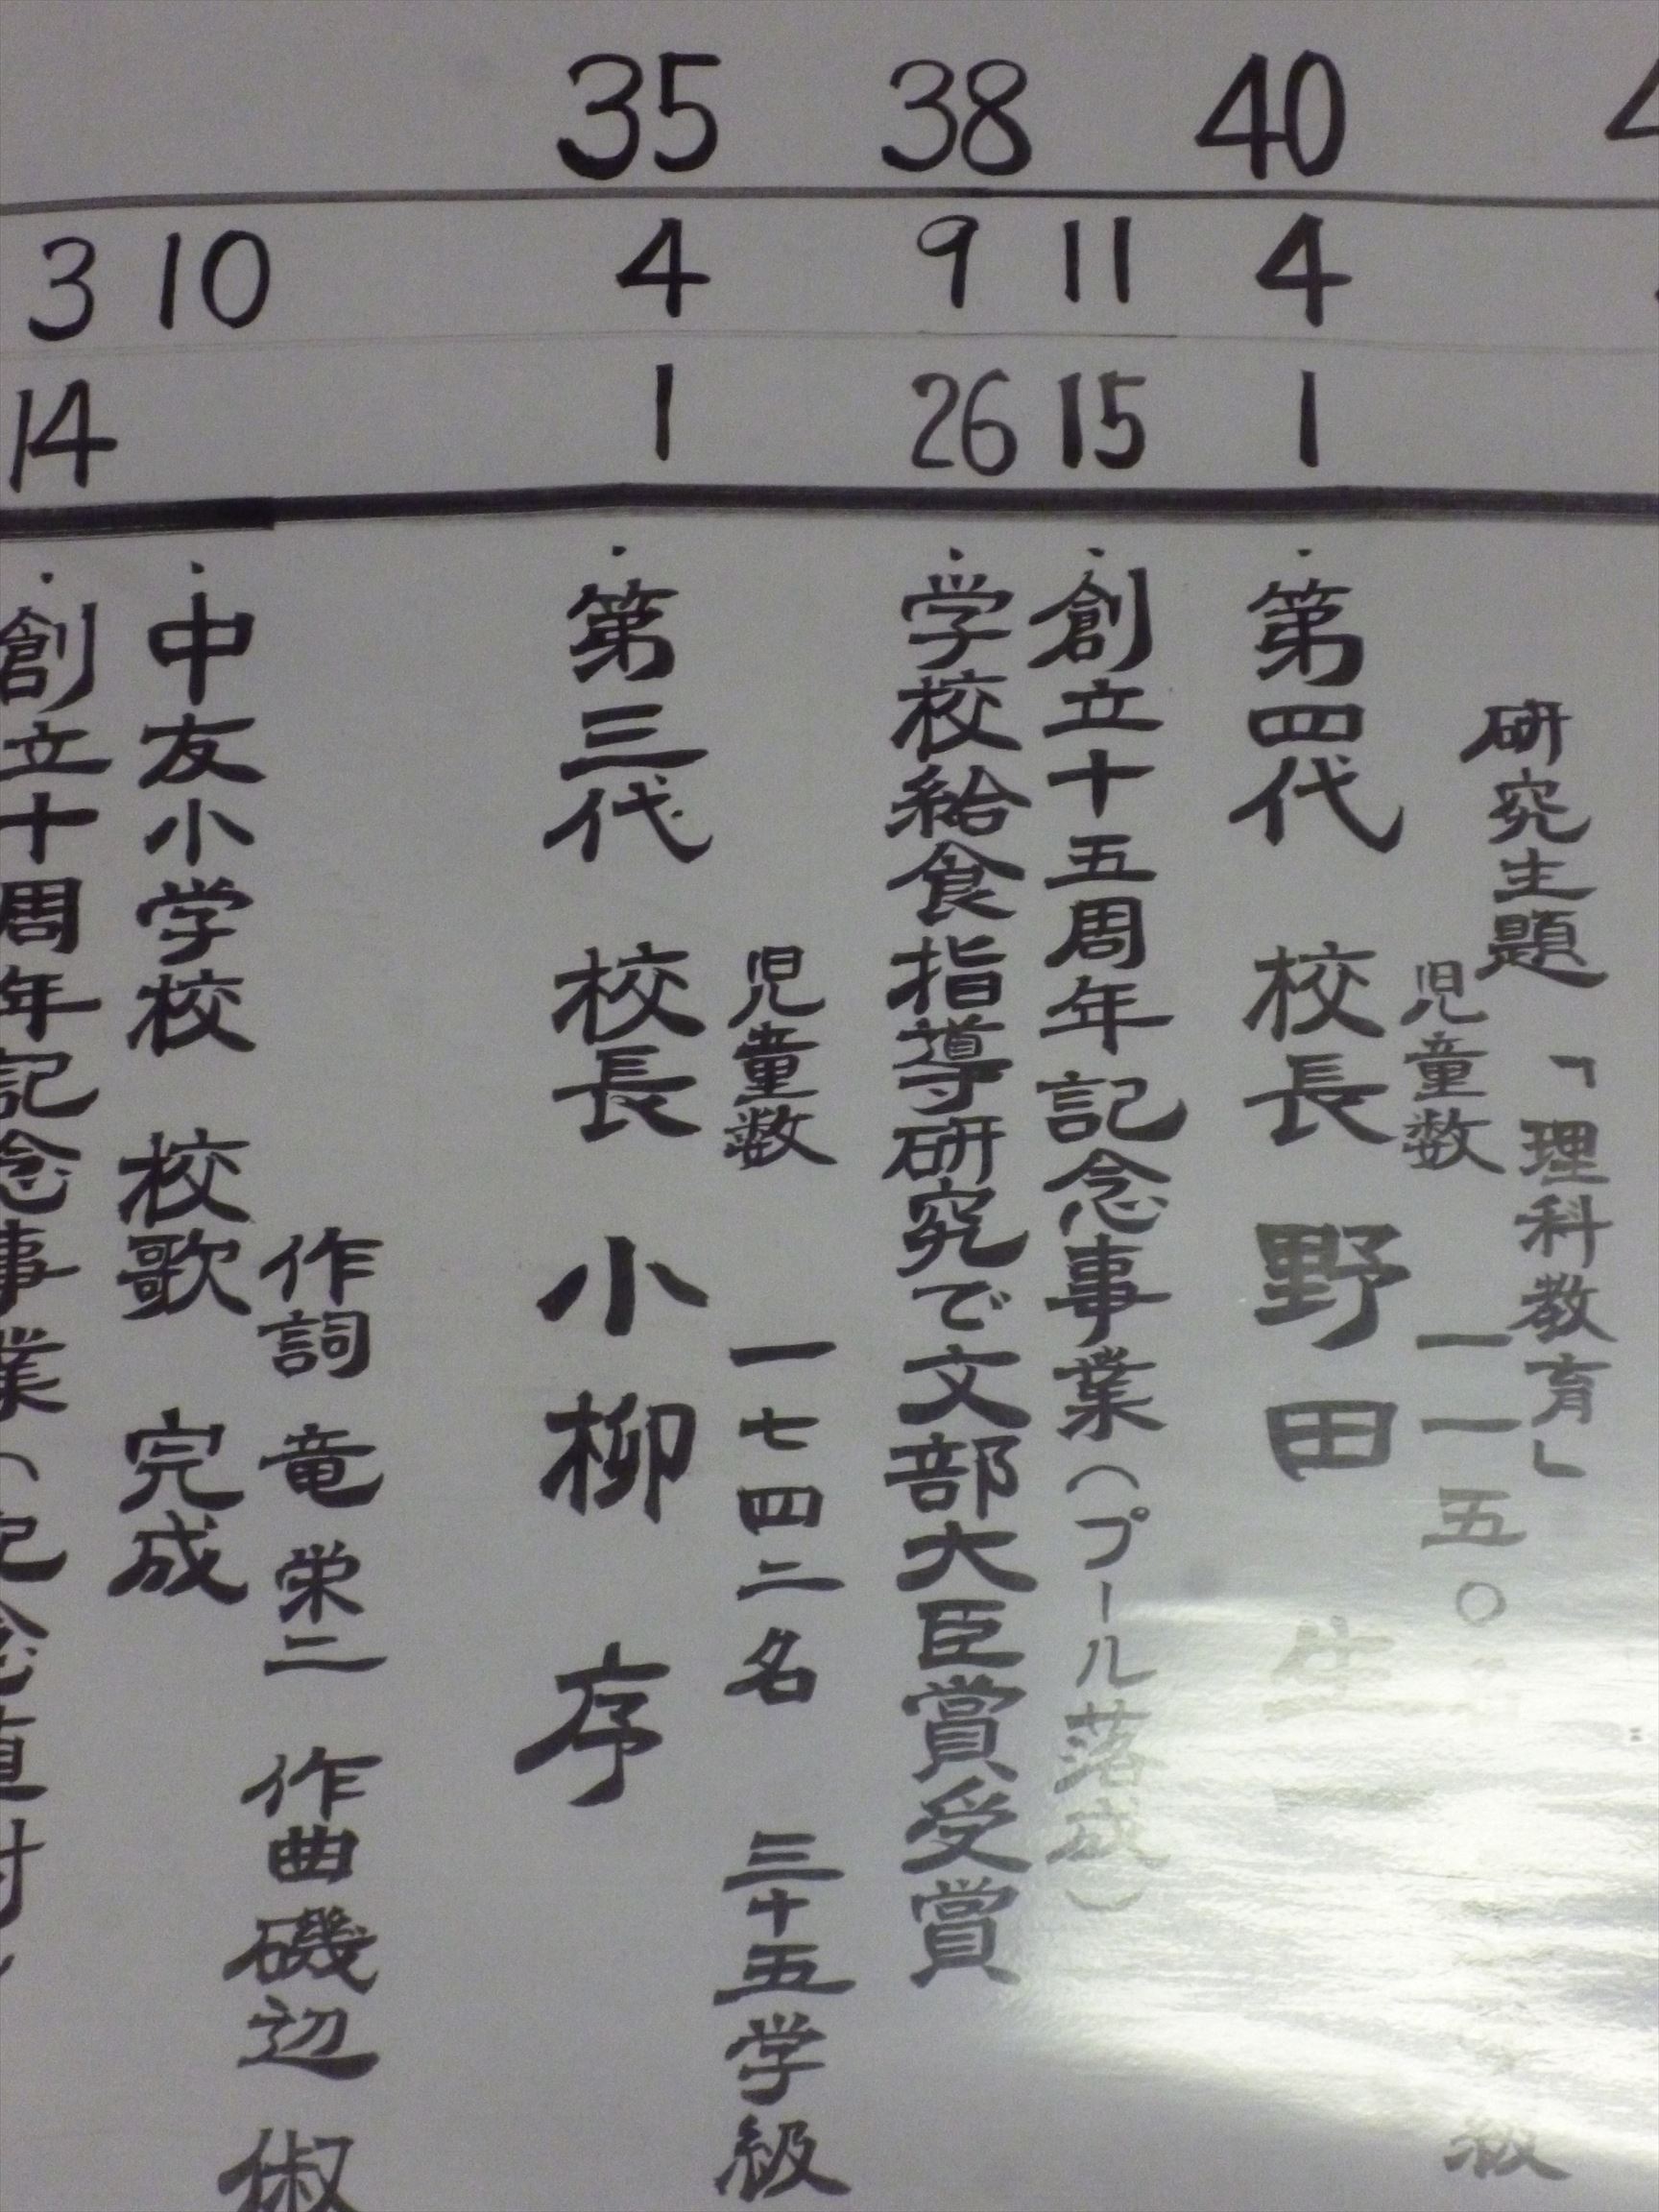 35 38 40
3 10 4 9 11 4
14 1 26 15 1
・創立十周年記念事業（記念
・中友小学校 校歌 完成
作詞 竜栄二 作曲磯辺 俶
・第三代 校長 小柳 序
児童数 一七四二名 三十五学級
・学校給食指導研究で文部大臣賞受賞
・創立十五周年記念事業（プール落成）
・第四代 校長 野田 生
児童数 一一五〇 級
研究主題「理科教育」